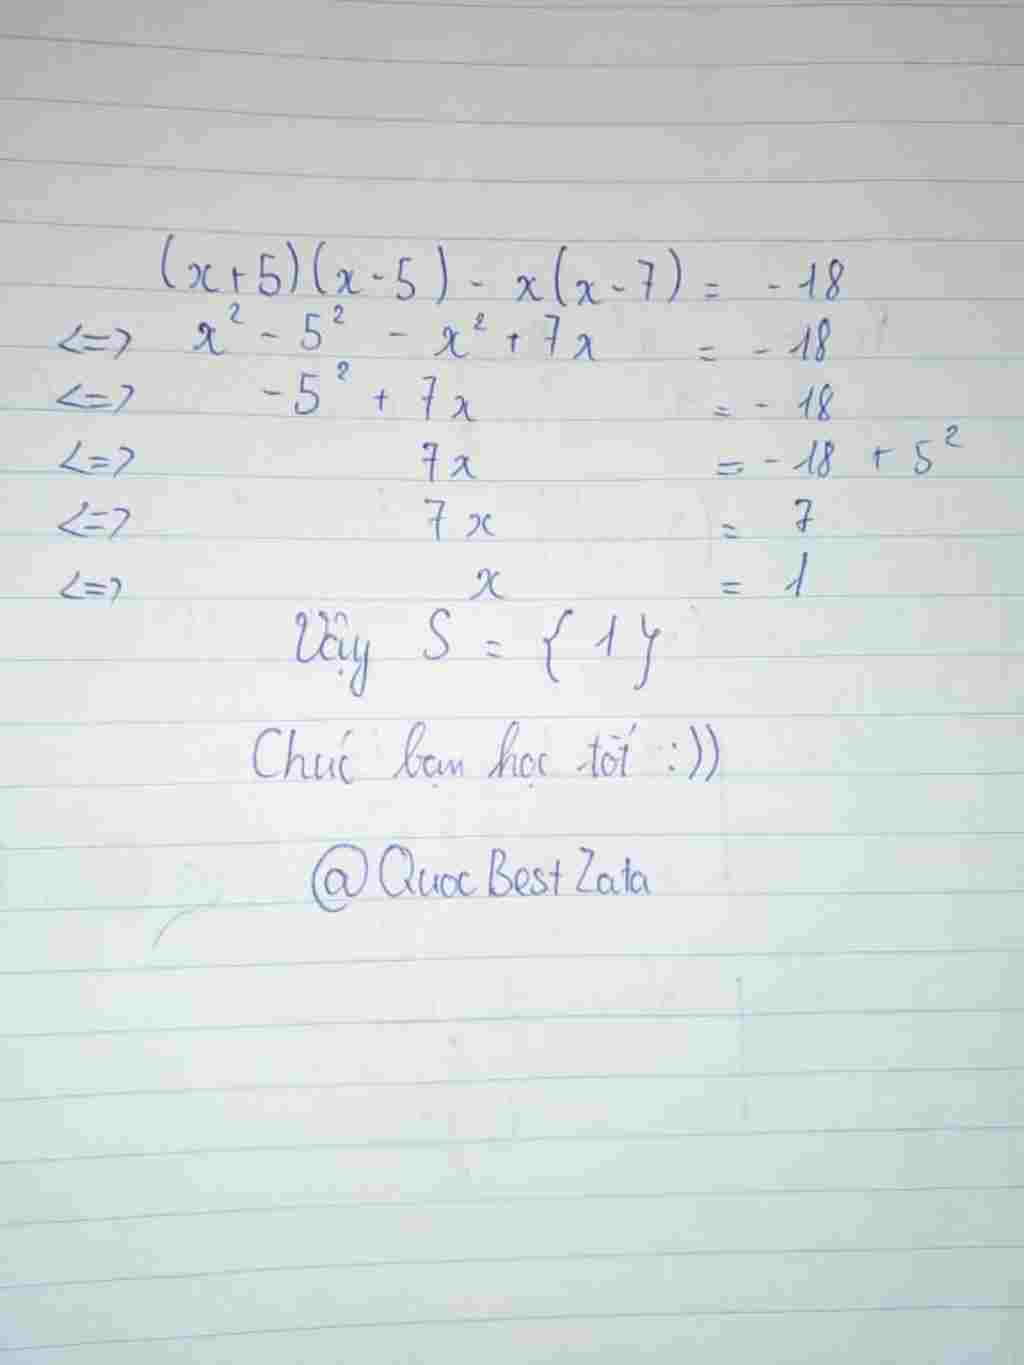 (x+5)(x-5) - x(x-7) = -18
<=> x² - 5² - x² + 7x = -18
<=> -5² + 7x = -18
<=> 7x = -18 + 5²
<=> 7x = 7
<=> x = 1
Vậy S = {1}
Chúc bạn học tốt :))
@QuocBestZata